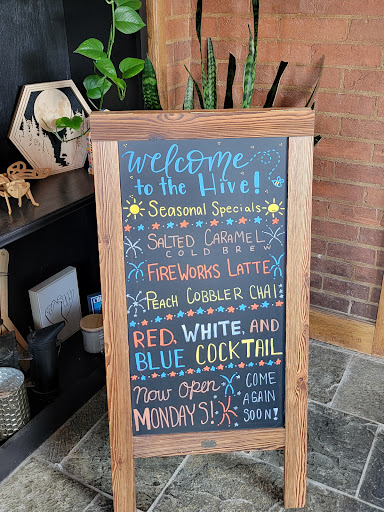 welcome
to the Hive!
Seasonal Specials
Salted Caramel
COLD BREW
FIREWORKS LATTE
PEACH COBBLER CHAI
RED, WHITE, AND
BLUE COCKTAIL
NOW OPEN
MONDAYS!
COME
AGAIN
SOON!